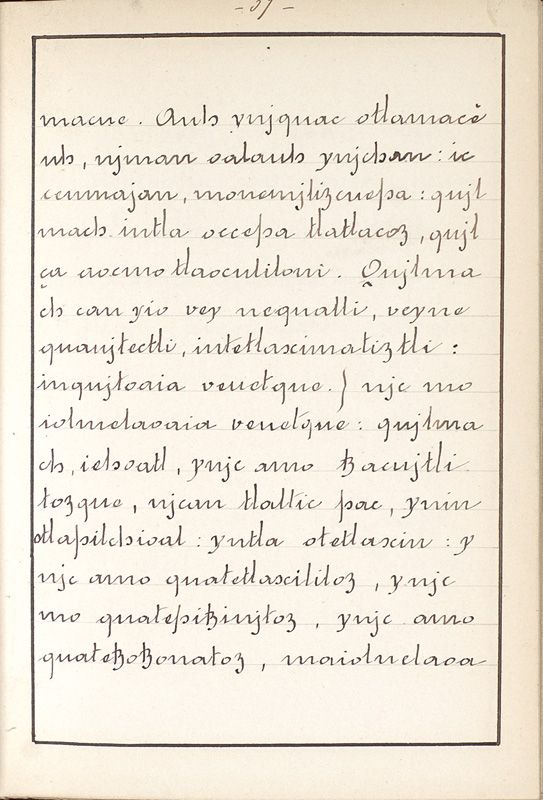 - 37 -
macue. Auh ynjquac otlamacê
uh, njman oalauh ynjchan: ic
cenmajan, moncujlizcuepa: qujl
mach intla occepa tlatlacoz, qujl
ça aocmo tlaoculiloni. Qujlma
ch can yio vey nequalli, veyne
quavjtectli, intetlaximatiztli:
inqujtoaia veuetque.) njc mo
iolmelaoaia veuetque: qujlma
ch, iehoatl, ynjc amo tzacujtli
tozque, njcan tlaltic pac, ynin
otlapilchioal: yntla otetlaxin: y
njc amo quatetlaxililoz, ynjc
mo quatepitzinjloz, ynjc amo
quatetzotzonaloz, maiolmelaoa